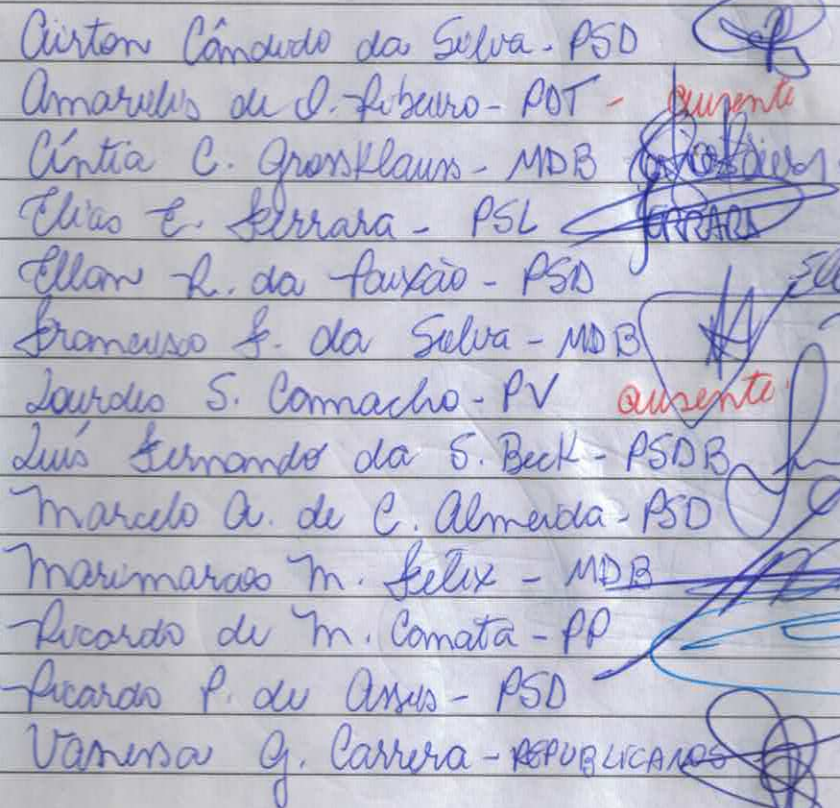 Airton Cândido da Silva - PSD
Amarilis de O. Ribeiro - PDT - ausente
Cíntia C. Grossklauss - MDB
Elias E. Ferrara - PSL FERRARA
Ellan R. da Paixão - PSD
Francisco F. da Silva - MDB
Lourdes S. Camacho - PV ausente
Luís Fernando da S. Beck - PSDB
Marcelo A. de C. Almeida - PSD
Marimarcos M. Felix - MDB
Ricardo de M. Camata - PP
Ricardo P. de Assis - PSD
Vanessa G. Carrera - REPUBLICANOS